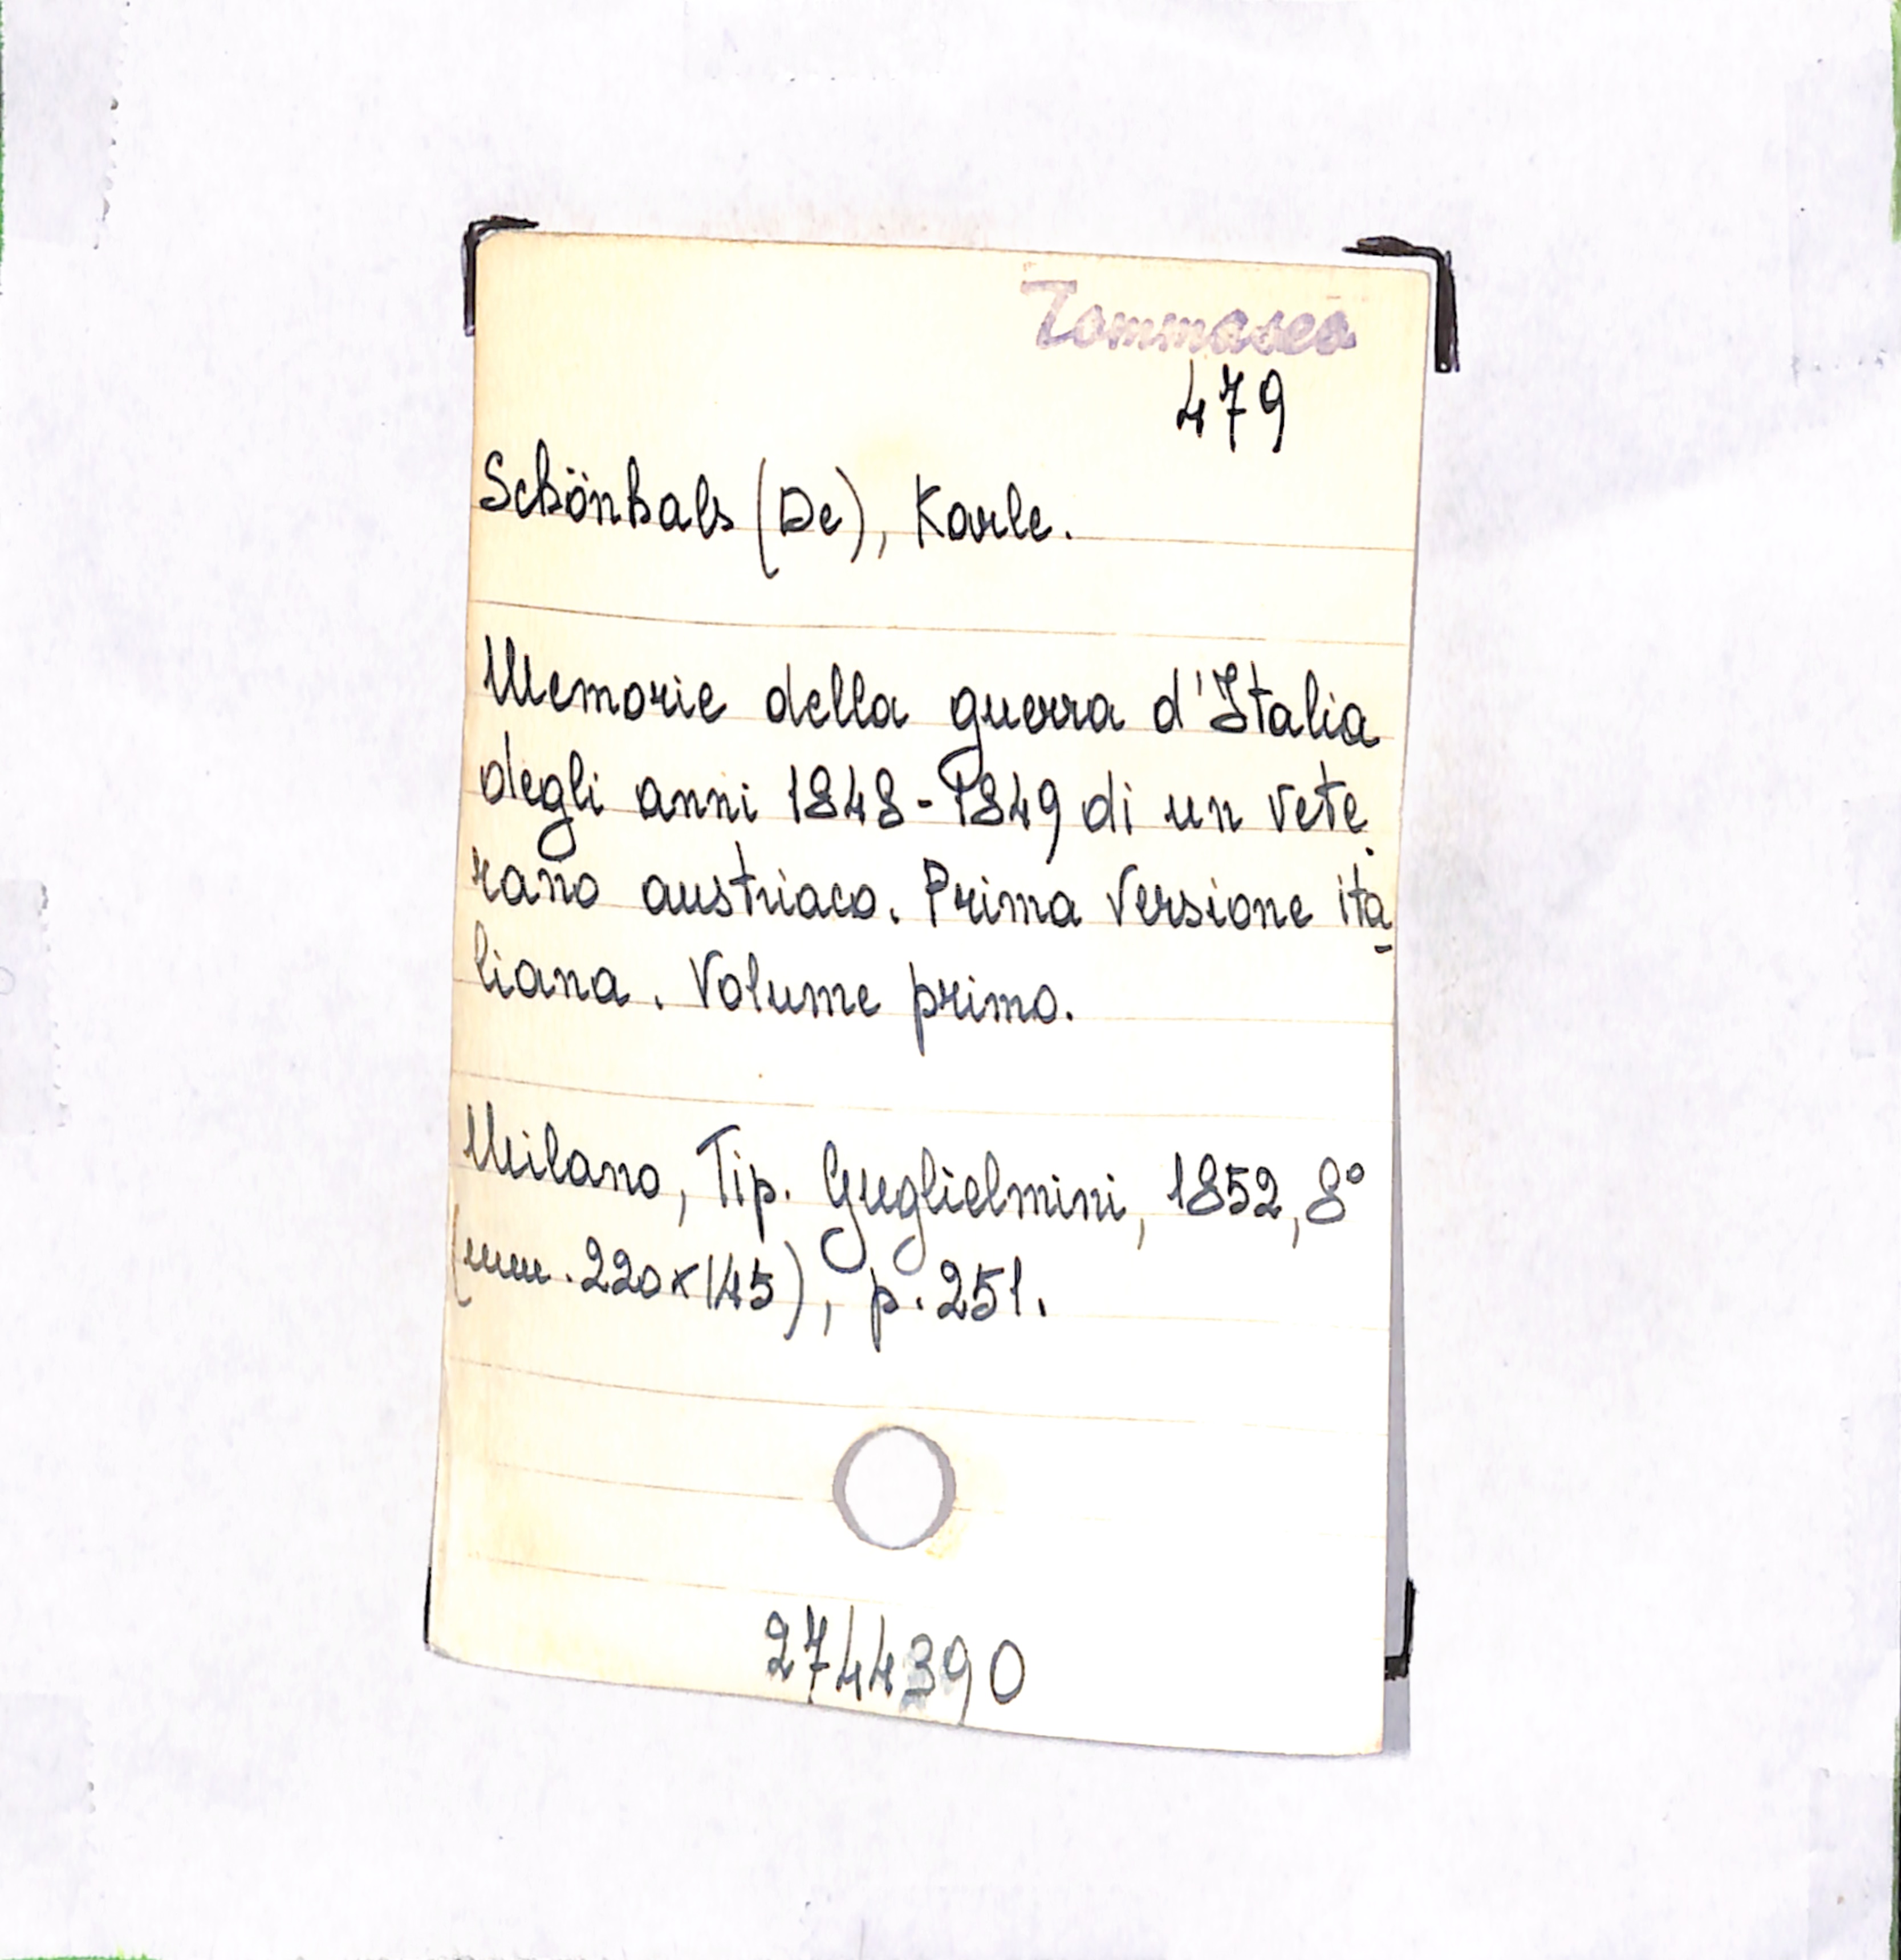 Tommaseo
479
Schönhals (De), Karle.
Memorie della guerra d'Italia
degli anni 1848-1849 di un vete
rano austriaco. Prima versione ita-
liana. Volume primo.
Milano, Tip. Guglielmini, 1852, 8°
(mm. 220x145), p. 251.
2744390